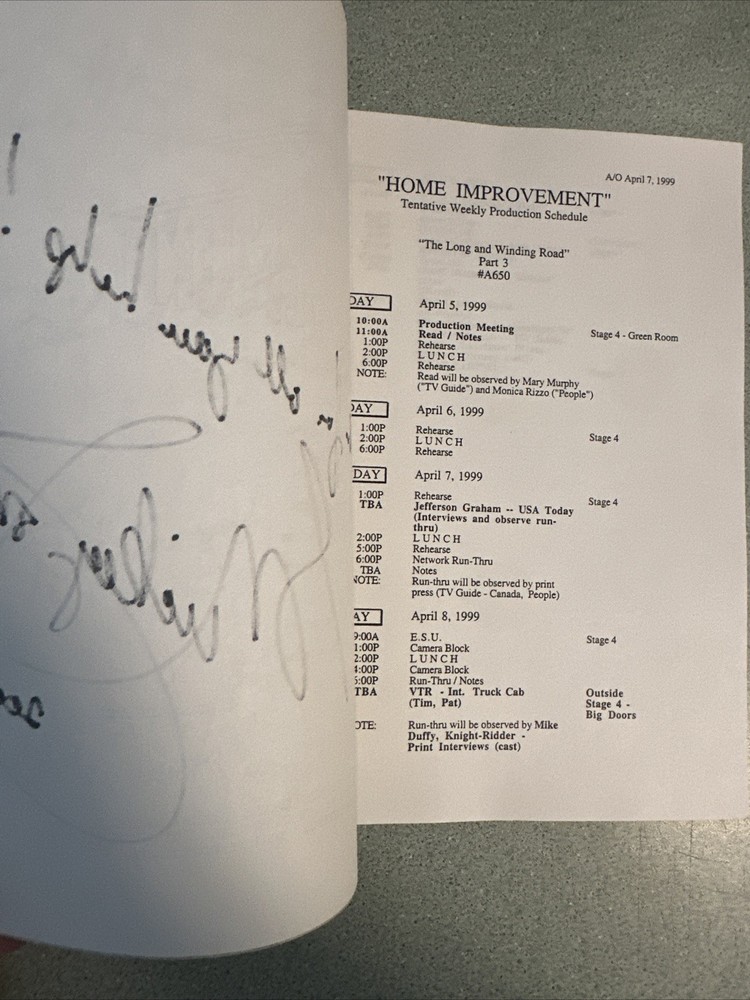 A/O April 7, 1999
"HOME IMPROVEMENT"
Tentative Weekly Production Schedule
"The Long and Winding Road"
Part 3
#A650
DAY April 5, 1999
10:00A Production Meeting Stage 4 - Green Room
11:00A Read / Notes
1:00P Rehearse
2:00P LUNCH
6:00P Rehearse
NOTE: Read will be observed by Mary Murphy
("TV Guide") and Monica Rizzo ("People")
DAY April 6, 1999
1:00P Rehearse Stage 4
2:00P LUNCH
6:00P Rehearse
DAY April 7, 1999
1:00P Rehearse Stage 4
TBA Jefferson Graham -- USA Today
(Interviews and observe run-
thru)
2:00P LUNCH
5:00P Rehearse
6:00P Network Run-Thru
TBA Notes
NOTE: Run-thru will be observed by print
press (TV Guide - Canada, People)
AY April 8, 1999
9:00A E.S.U. Stage 4
1:00P Camera Block
2:00P LUNCH
4:00P Camera Block
5:00P Run-Thru / Notes
TBA VTR - Int. Truck Cab Outside
(Tim, Pat) Stage 4 -
Big Doors
OTE: Run-thru will be observed by Mike
Duffy, Knight-Ridder -
Print Interviews (cast)
all your help!